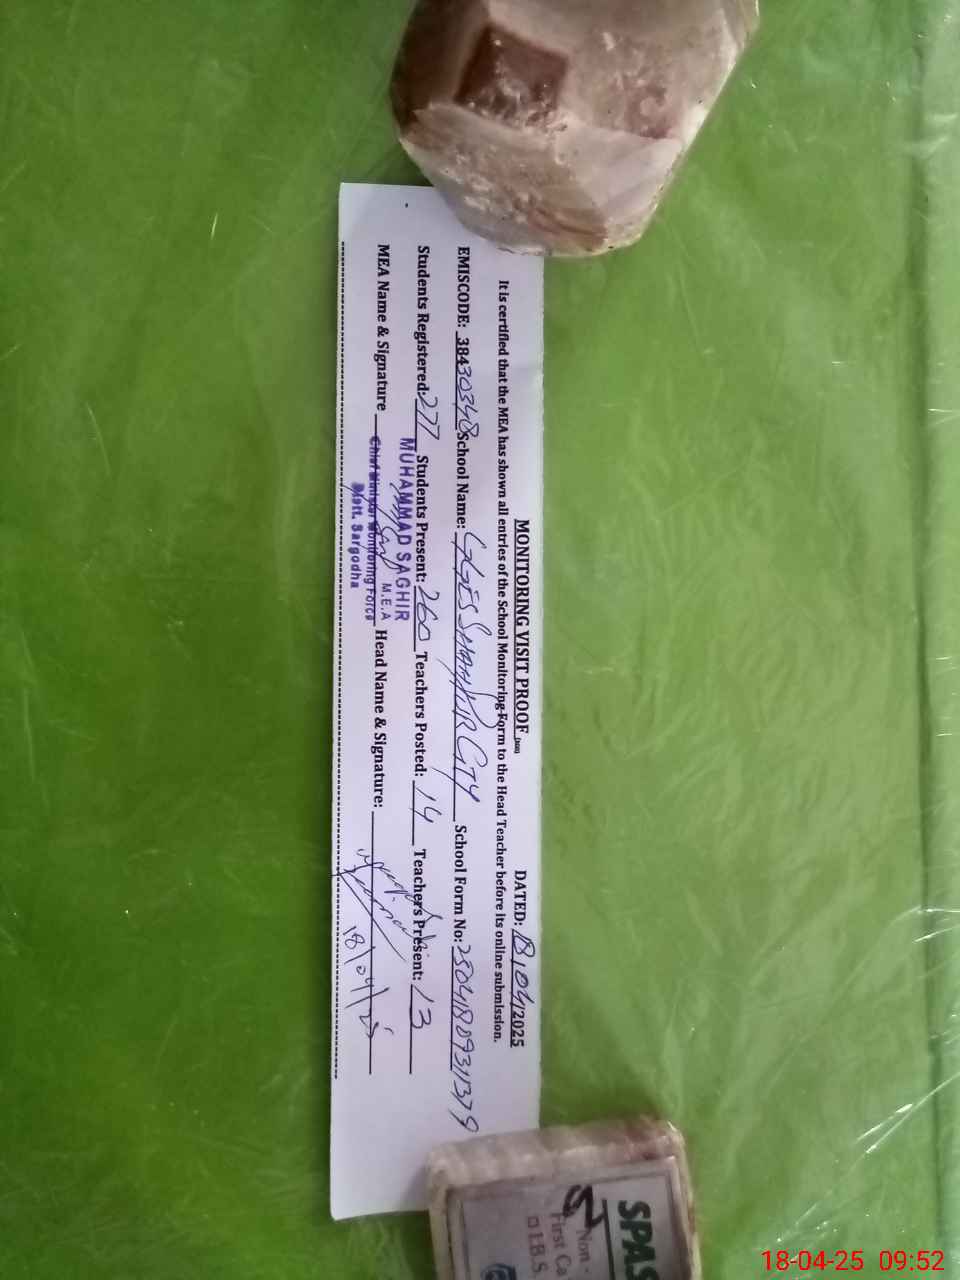 MONITORING VISIT PROOF DATED: 18/04/2025
It is certified that the MEA has shown all entries of the School Monitoring Form to the Head Teacher before its online submission.
EMISCODE: 38430348 School Name: GGES SHAHPUR CITY School Form No: 250418093111379
Students Registered: 277 Students Present: 260 Teachers Posted: 14 Teachers Present: 13
MEA Name & Signature Head Name & Signature:
MUHAMMAD SAGHIR
M.E.A
Chief Minister Monitoring Force
Distt. Sargodha
18/04/25
SPAS
Non -
First Ca
I.B.S.
18-04-25 09:52